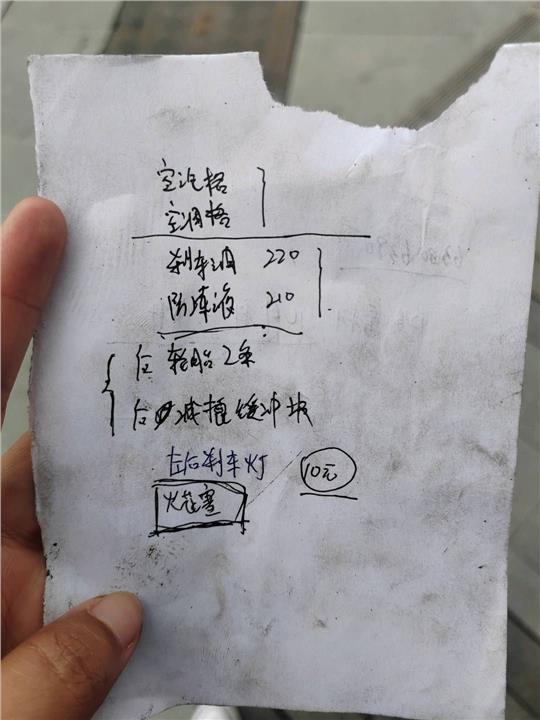 空汽格
空调格
刹车油 220
防冻液 210
后轮胎2条
后减震缓冲块
左后刹车灯 10元
火花塞